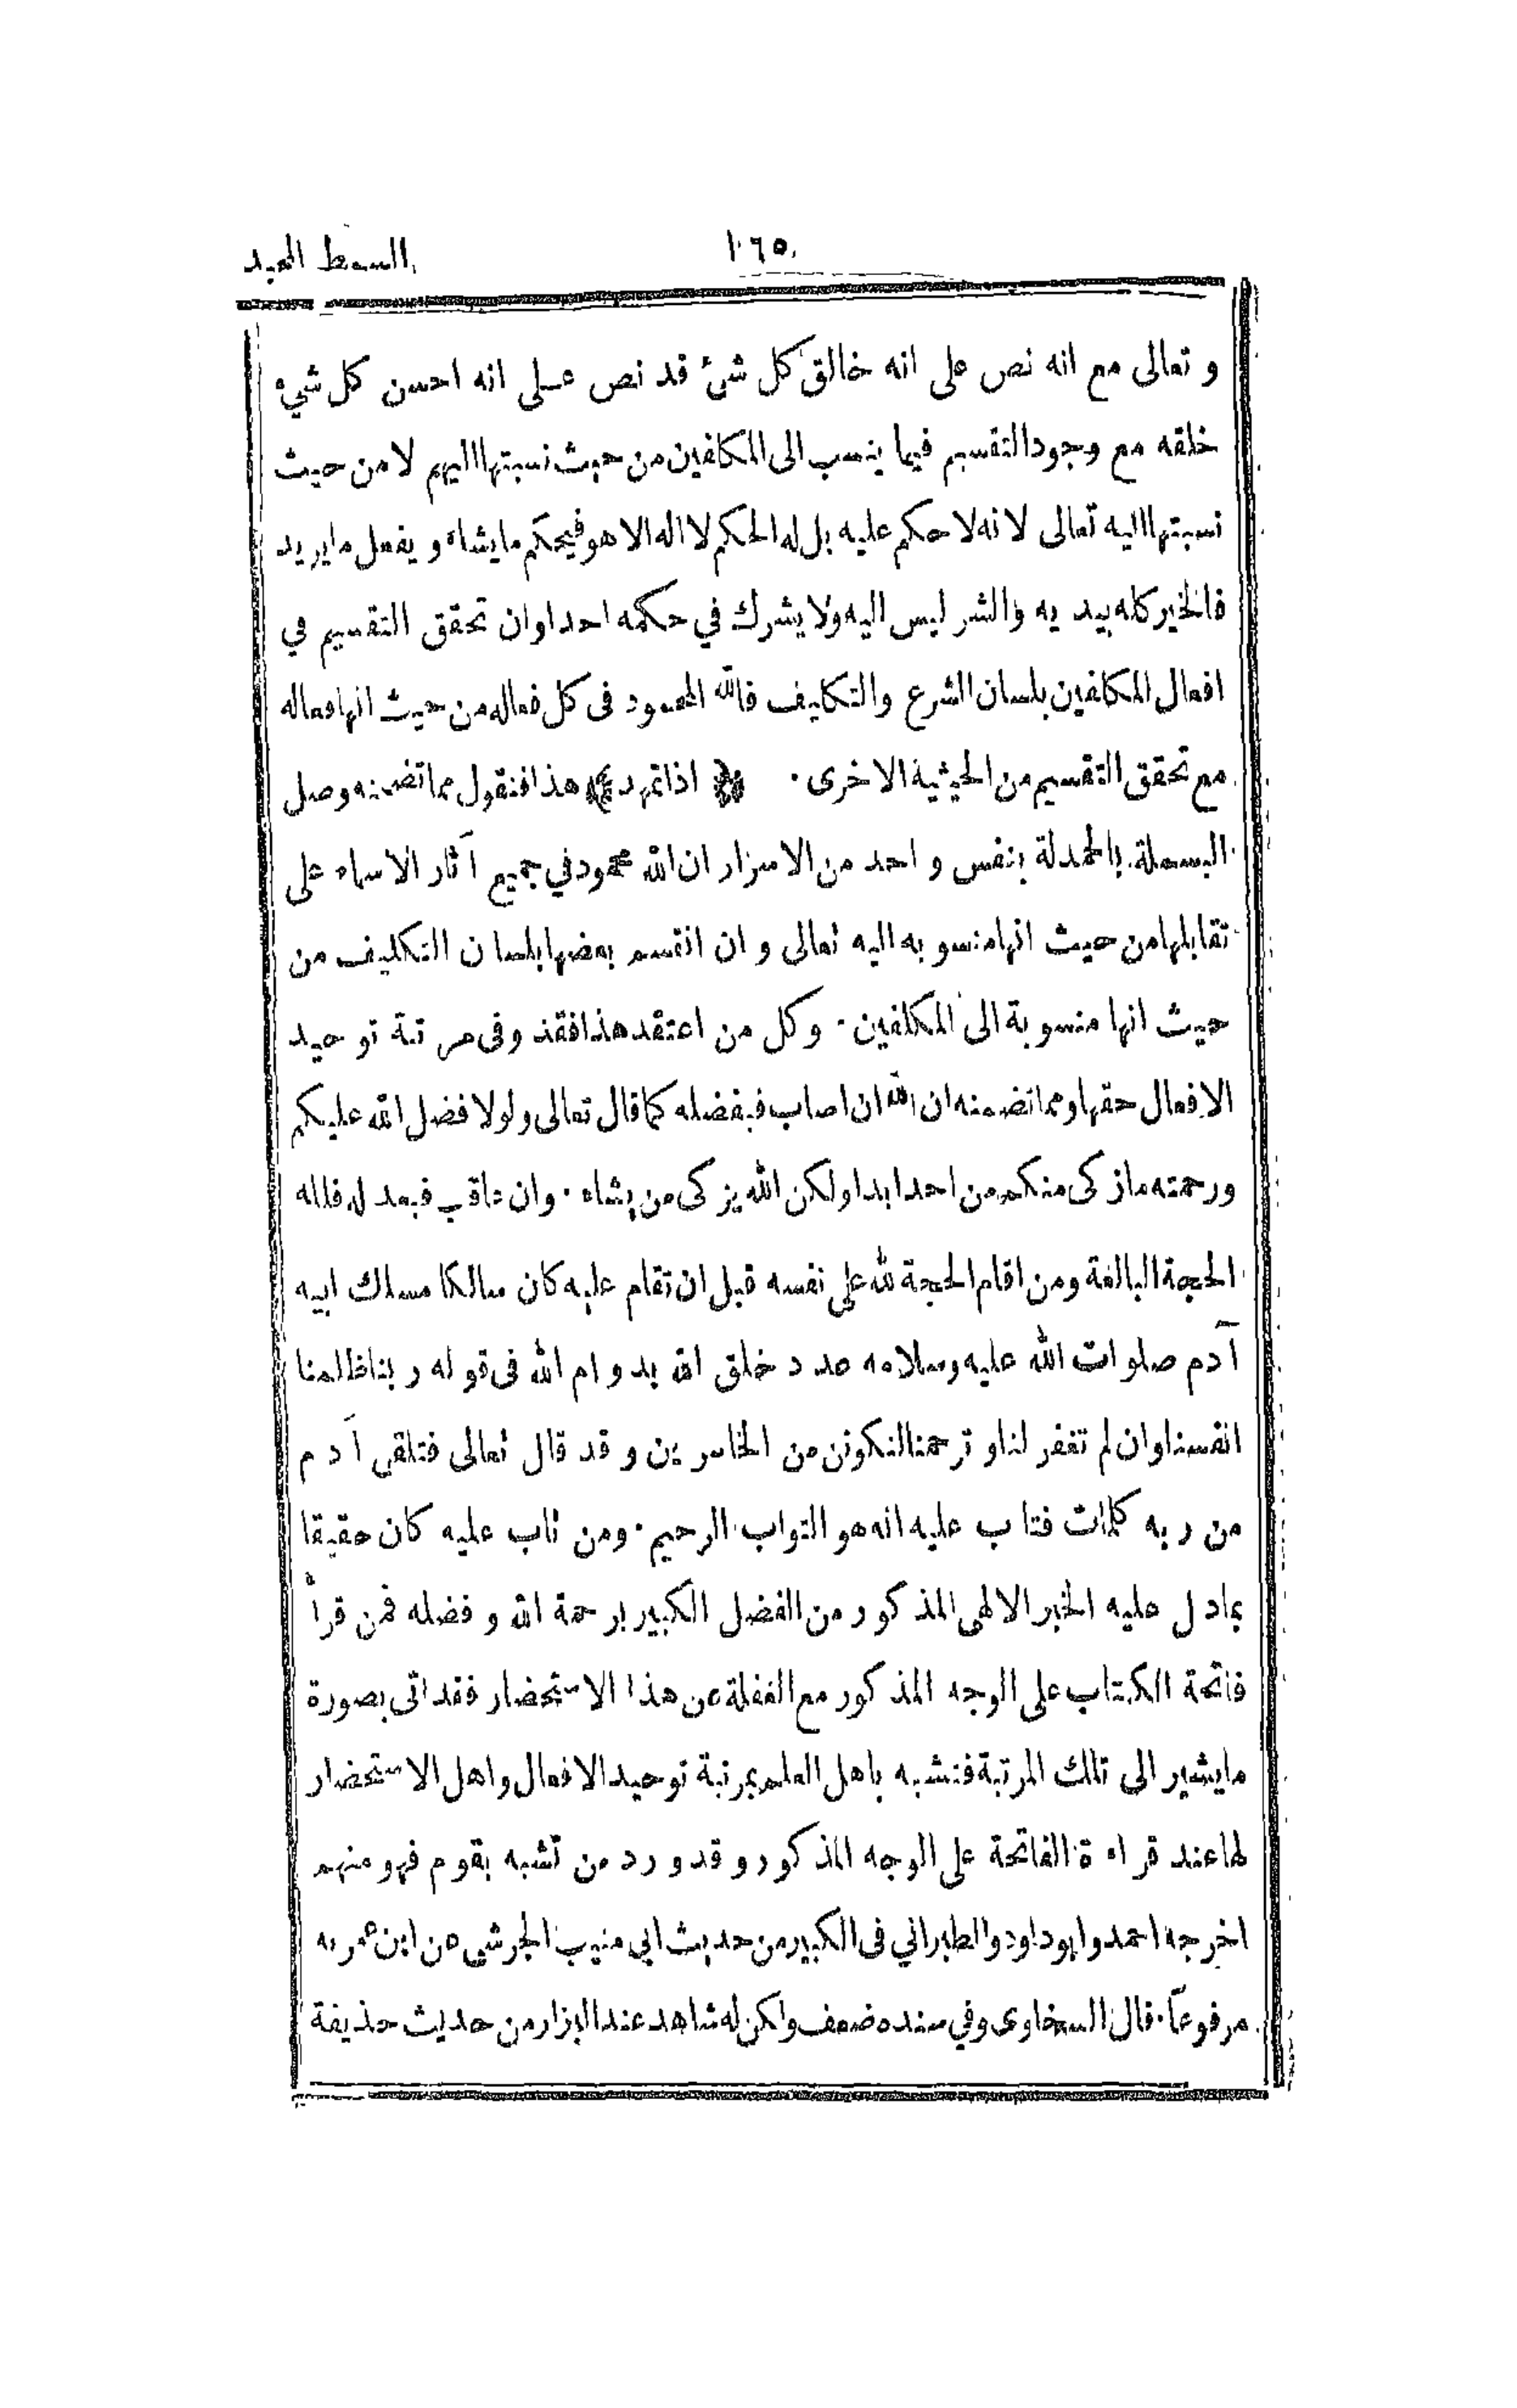 السمط المجيد
١٦٥
و تعالى مع انه نص على انه خالق كل شئ قد نص عـلى انه احسن كل شيء
خلقه مع وجود التقسيم فيما ينسب الى المكلفين من حيث نسبتها اليهم لا من حيث
نسبتها اليه تعالى لانه لا حكم عليه بل له الحكم لا اله الا هو فيحكم ما يشاء و يفعل ما يريد
فالخير كله بيد يه والشر ليس اليه ولا يشرك في حكمه احدا وان تحقق التقسيم في
افعال المكلفين بلسان الشرع والتكليف فالله المحمود فى كل فعاله من حيث انها فعاله
مع تحقق التقسيم من الحيثية الاخرى · ﴿ اذا تمهد ﴾ هذا فنقول مما تضمنه وصل
البسملة بالحمدلة بنفس و احد من الاسرار ان الله محمود في جميع آثار الاسماء على
تقابلها من حيث انها منسو به اليه تعالى و ان انقسم بعضها بلسان التكليف من
حيث انها منسو بة الى المكلفين · وكل من اعتقد هذا فقد وفى مر تبة تو حيد
الافعال حقها ومما تضمنه ان الله ان اصاب فبفضله كما قال تعالى ولولا فضل الله عليكم
ورحمته ماز كى منكم من احد ابدا ولكن الله يز كى من يشاء · وان عاقب فبعد له فلله
الحجة البالغة ومن اقام الحجة لله على نفسه قبل ان تقام عليه كان سالكا مسلك ابيه
آدم صلوات الله عليه وسلامه عدد خلق الله بدوام الله فى قوله ربنا ظلمنا
انفسنا وان لم تغفر لنا و ترحمنا لنكونن من الخاسر ين و قد قال تعالى فتلقى آدم
من ربه كلمات فتاب عليه انه هو التواب الرحيم · ومن تاب عليه كان حقيقا
بماد ل عليه الخبر الالهى المذ كور من الفضل الكبير برحمة الله و فضله فمن قرأ
فاتحة الكتاب على الوجه المذ كور مع الغفلة عن هذا الاستحضار فقد اتى بصورة
مايشير الى تلك المرتبة فتشبه باهل العلم بمرتبة توحيد الافعال واهل الاستحضار
لها عند قراءة الفاتحة على الوجه المذ كور و قد ورد من تشبه بقوم فهو منهم
اخرجه احمد وابوداود والطبراني فى الكبير من حديث ابي منيب الجرشى عن ابن عمر به
مرفوعاً · قال السخاوى وفي سنده ضعف ولكن له شاهد عند البزار من حديث حذيفة